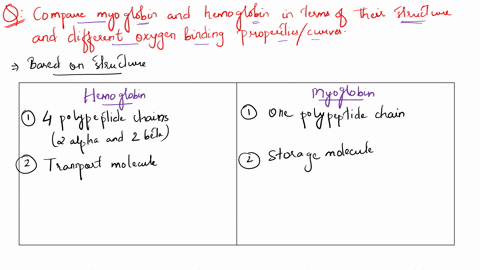 Q: Compare myoglobin and hemoglobin in terms of their structure
and different oxygen binding properties/curves.
⇒ Based on Structure
Hemoglobin
① 4 polypeptide chains
(2 alpha and 2 beta)
② Transport molecule
Myoglobin
① One polypeptide chain
② Storage molecule